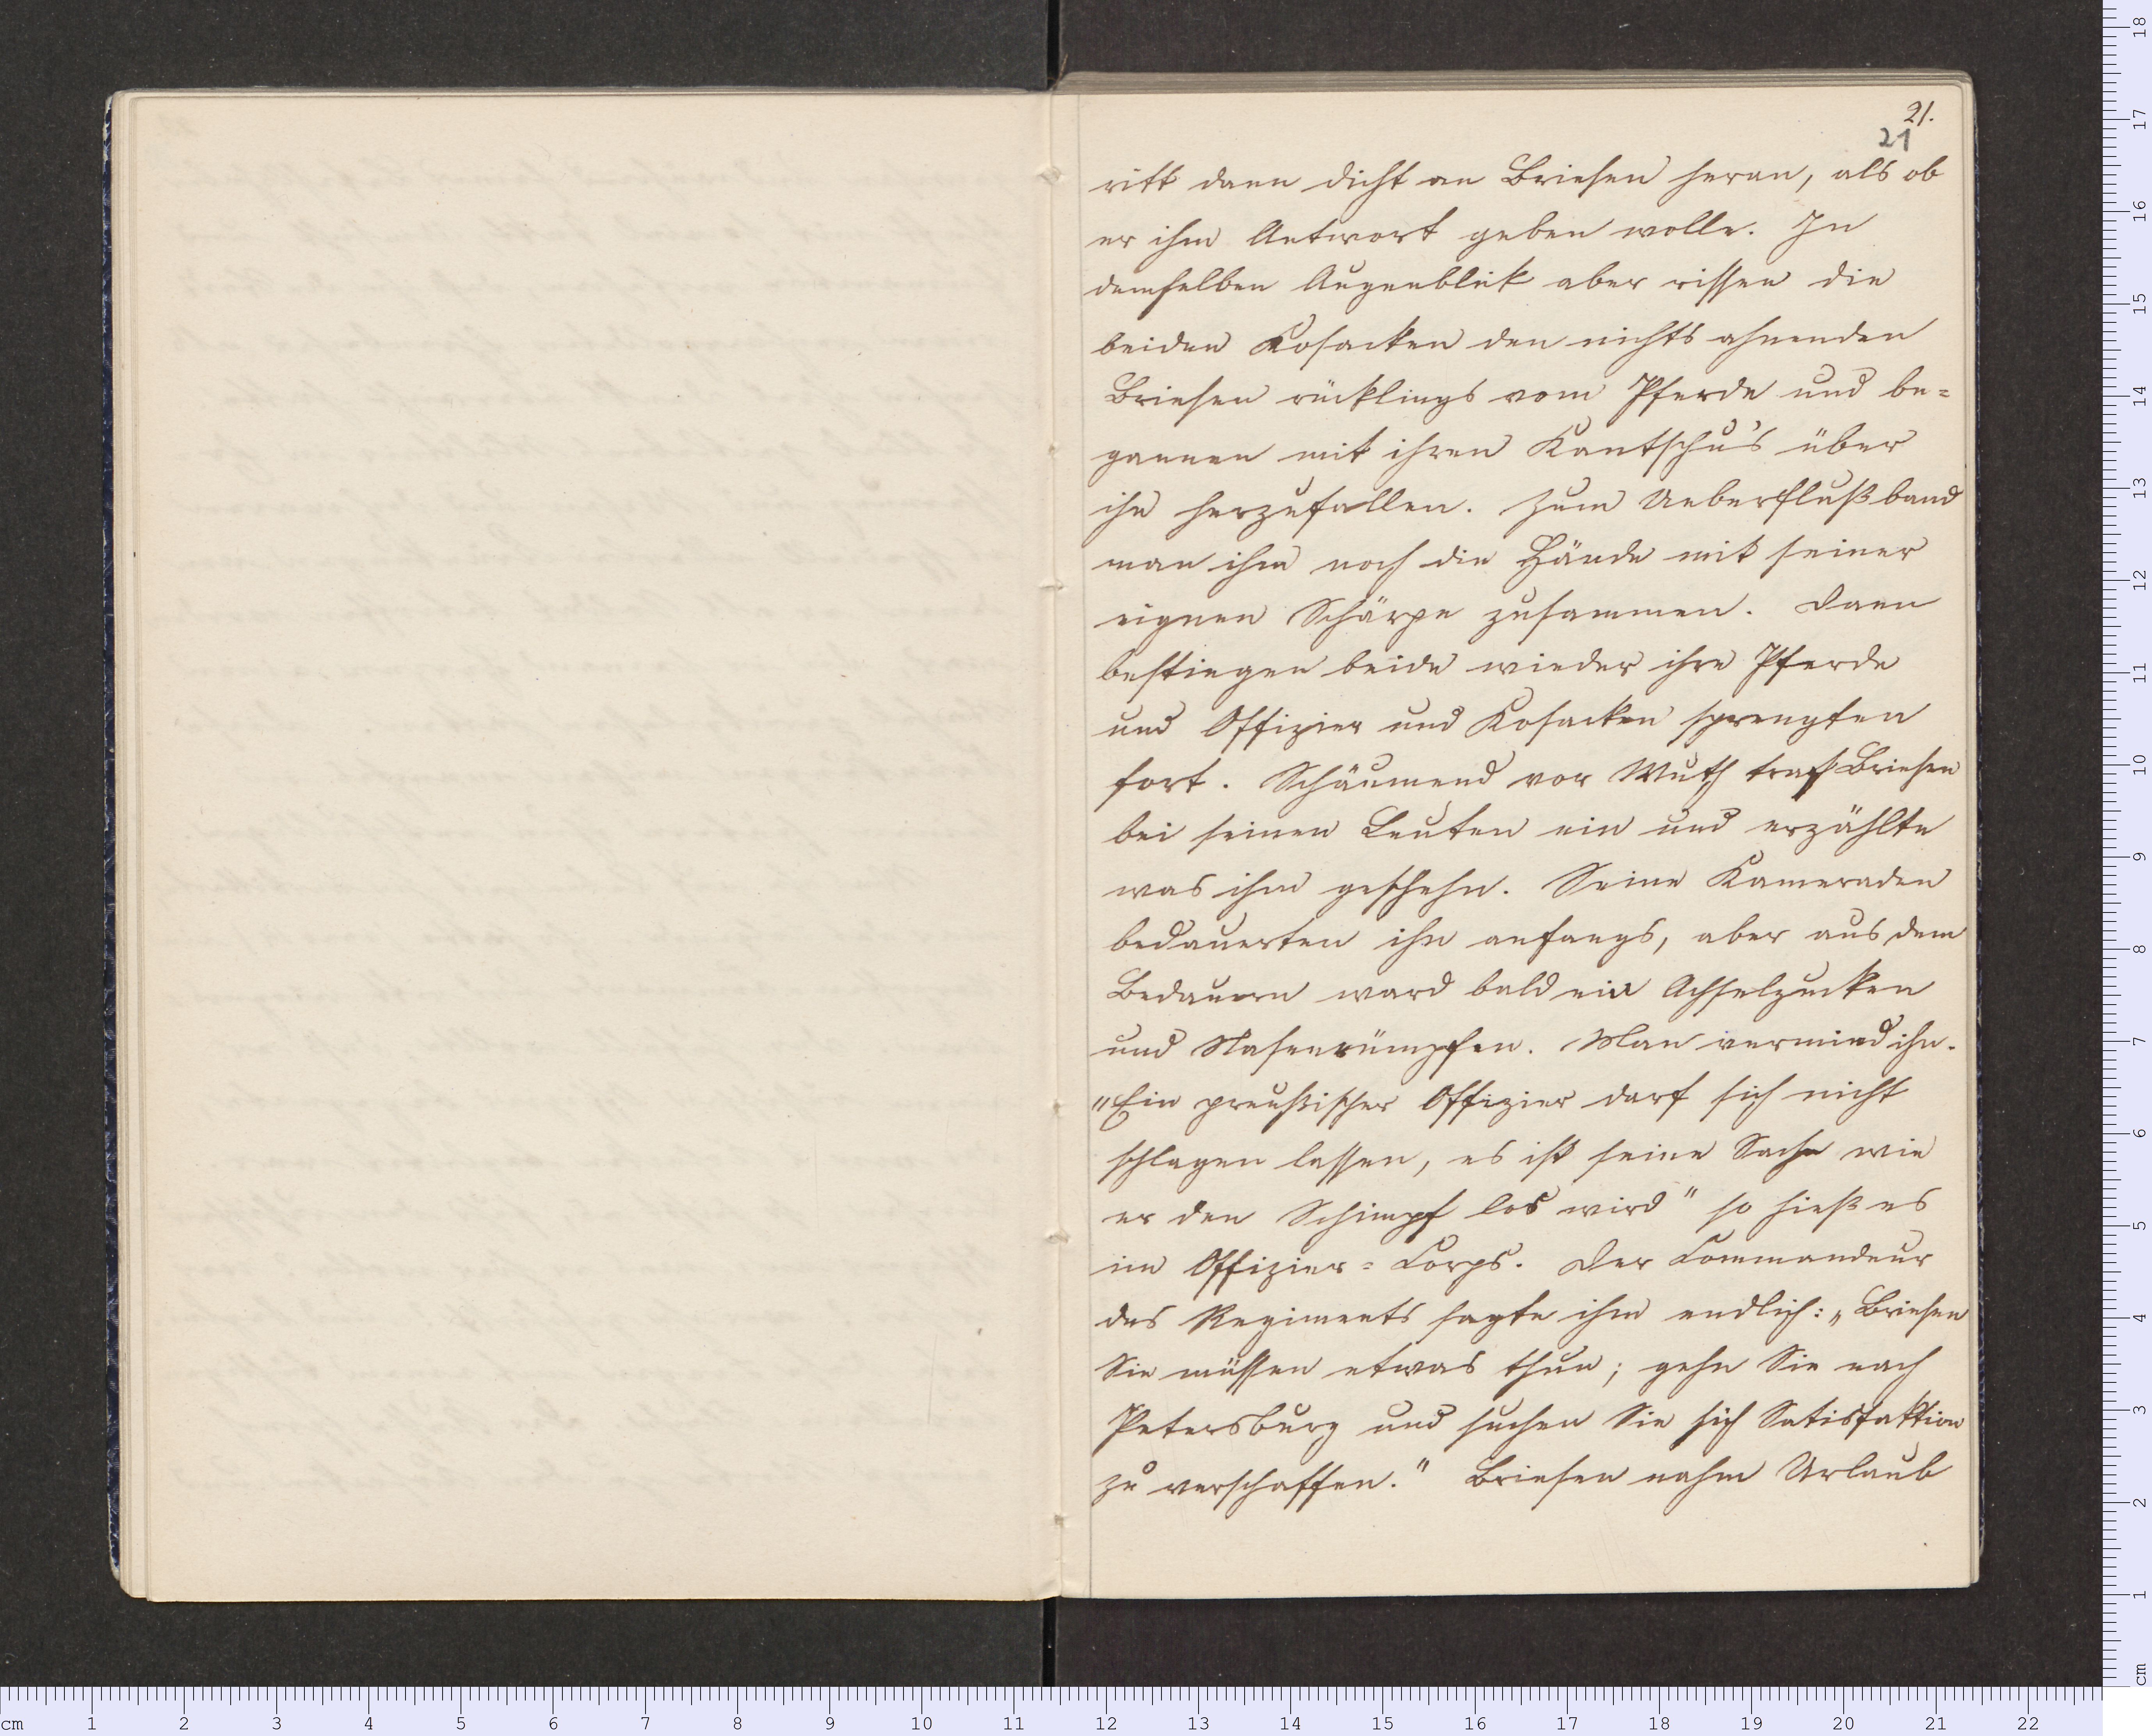 21.
21
ritt dann dicht an Briesen heran, als ob
er ihm Antwort geben wolle. In
demselben Augenblick aber rissen die
beiden Kosacken den nichts ahnenden
Briesen rücklings vom Pferde und be=
gannen mit ihren Kantschu's über
ihn herzufallen. Zum Ueberfluß band
man ihm noch die Hände mit seiner
eignen Schärpe zusammen. Dann
bestiegen beide wieder ihre Pferde
und Offizier und Kosacken sprengten
fort. Schäumend vor Wuth traf Briesen
bei seinen Leuten ein und erzählte
was ihm geschehn. Seine Kameraden
bedauerten ihn anfangs, aber aus dem
Bedauern ward bald ein Achselzucken
und Nasenrümpfen. Man vermied ihn.
"Ein preußischer Offizier darf sich nicht
schlagen lassen, es ist seine Sache wie
er den Schimpf los wird" so hieß es
im Offizier=Corps. Der Commandeur
des Regiments sagte ihm endlich: „Briesen
Sie müssen etwas thun; gehn Sie nach
Petersburg und suchen Sie sich Satisfaktion
zu verschaffen." Briesen nahm Urlaub
cm 1 2 3 4 5 6 7 8 9 10 11 12 13 14 15 16 17 18 19 20 21 22
cm 1 2 3 4 5 6 7 8 9 10 11 12 13 14 15 16 17 18